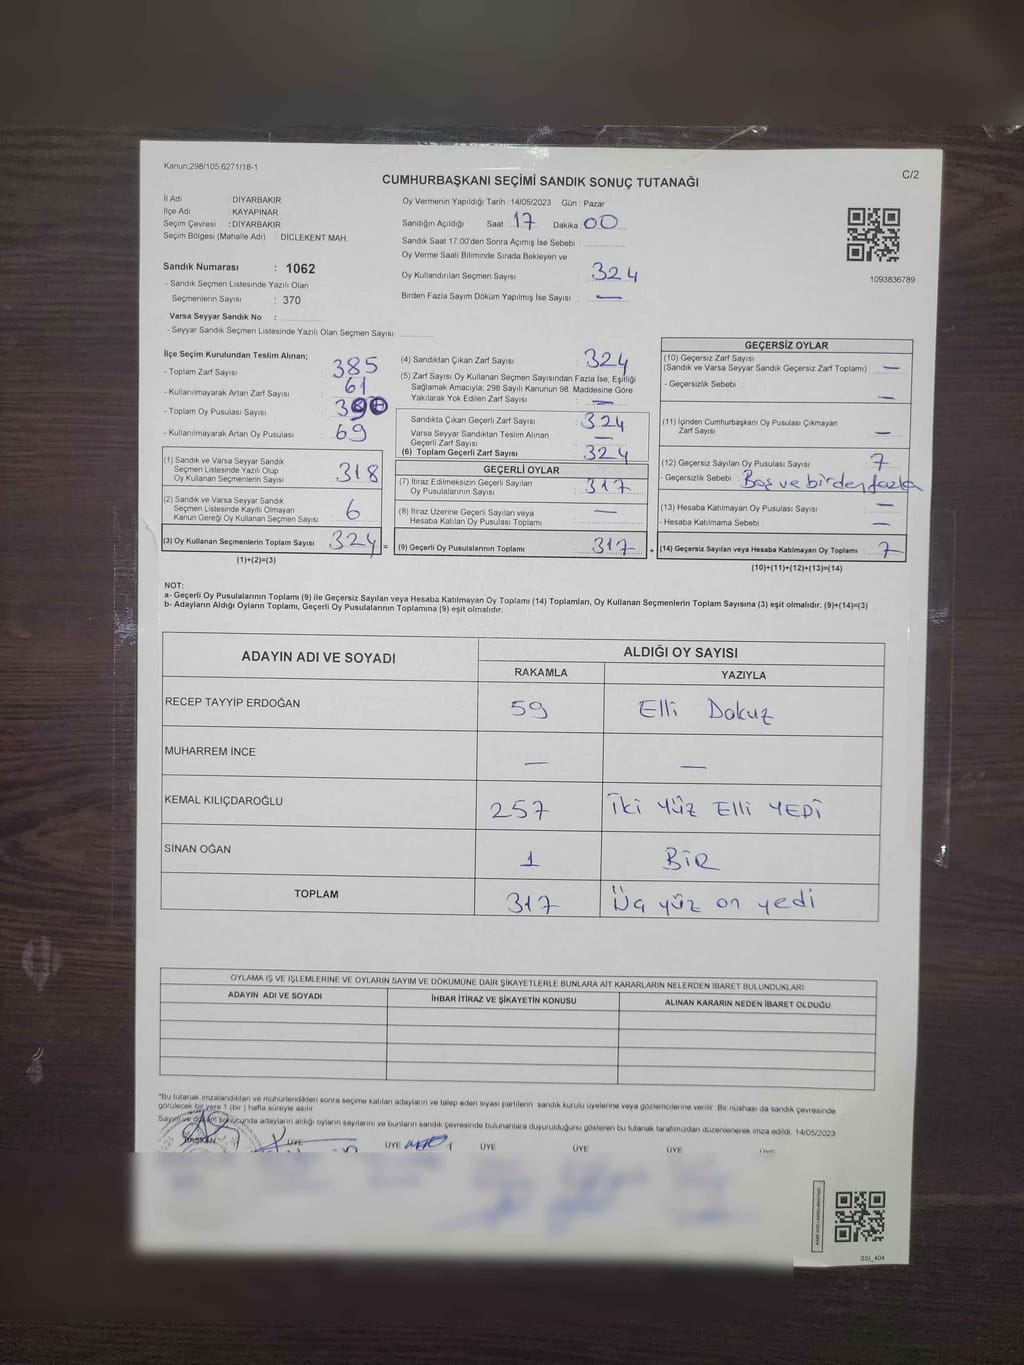 Kanun;298/105;6271/18-1
C/2
CUMHURBAŞKANI SEÇİMİ SANDIK SONUÇ TUTANAĞI
İl Adı : DİYARBAKIR
İlçe Adı : KAYAPINAR
Seçim Çevresi : DİYARBAKIR
Seçim Bölgesi (Mahalle Adı) : DİCLEKENT MAH.
Sandık Numarası : 1062
- Sandık Seçmen Listesinde Yazılı Olan
Seçmenlerin Sayısı : 370
Varsa Seyyar Sandık No :
- Seyyar Sandık Seçmen Listesinde Yazılı Olan Seçmen Sayısı:
Oy Vermenin Yapıldığı Tarih : 14/05/2023 Gün : Pazar
Sandığın Açıldığı Saat : 17 Dakika : 00
Sandık Saat 17:00'den Sonra Açımış İse Sebebi :
Oy Verme Saati Bitiminde Sırada Bekleyen ve
Oy Kullandırılan Seçmen Sayısı : 324
Birden Fazla Sayım Döküm Yapılmış İse Sayısı : —
1093836789
İlçe Seçim Kurulundan Teslim Alınan;
- Toplam Zarf Sayısı : 385
- Kullanılmayarak Artan Zarf Sayısı : 61
- Toplam Oy Pusulası Sayısı :
- Kullanılmayarak Artan Oy Pusulası : 69
(1) Sandık ve Varsa Seyyar Sandık
Seçmen Listesinde Yazılı Olup
Oy Kullanan Seçmenlerin Sayısı : 318
(2) Sandık ve Varsa Seyyar Sandık
Seçmen Listesinde Kayıtlı Olmayan
Kanun Gereği Oy Kullanan Seçmen Sayısı : 6
(3) Oy Kullanan Seçmenlerin Toplam Sayısı : 324
(1)+(2)=(3)
(4) Sandıktan Çıkan Zarf Sayısı : 324
(5) Zarf Sayısı Oy Kullanan Seçmen Sayısından Fazla İse, Eşitliği
Sağlamak Amacıyla; 298 Sayılı Kanunun 98. Maddesine Göre
Yakılarak Yok Edilen Zarf Sayısı : —
Sandıkta Çıkan Geçerli Zarf Sayısı : 324
Varsa Seyyar Sandıktan Teslim Alınan
Geçerli Zarf Sayısı : —
(6) Toplam Geçerli Zarf Sayısı : 324
GEÇERLİ OYLAR
(7) İtiraz Edilmeksizin Geçerli Sayılan
Oy Pusulalarının Sayısı : 317
(8) İtiraz Üzerine Geçerli Sayılan veya
Hesaba Katılan Oy Pusulası Toplamı : —
= (9) Geçerli Oy Pusulalarının Toplamı : 317
GEÇERSİZ OYLAR
(10) Geçersiz Zarf Sayısı
(Sandık ve Varsa Seyyar Sandık Geçersiz Zarf Toplamı) : —
- Geçersizlik Sebebi : —
(11) İçinden Cumhurbaşkanı Oy Pusulası Çıkmayan
Zarf Sayısı : —
(12) Geçersiz Sayılan Oy Pusulası Sayısı : 7
- Geçersizlik Sebebi : Boş ve birden fazla
(13) Hesaba Katılmayan Oy Pusulası Sayısı : —
- Hesaba Katılmama Sebebi : —
+ (14) Geçersiz Sayılan veya Hesaba Katılmayan Oy Toplamı : 7
(10)+(11)+(12)+(13)=(14)
NOT:
a- Geçerli Oy Pusulalarının Toplamı (9) ile Geçersiz Sayılan veya Hesaba Katılmayan Oy Toplamı (14) Toplamları, Oy Kullanan Seçmenlerin Toplam Sayısına (3) eşit olmalıdır. (9)+(14)=(3)
b- Adayların Aldığı Oyların Toplamı, Geçerli Oy Pusulalarının Toplamına (9) eşit olmalıdır.
ADAYIN ADI VE SOYADI
ALDIĞI OY SAYISI
RAKAMLA YAZIYLA
RECEP TAYYİP ERDOĞAN 59 Elli Dokuz
MUHARREM İNCE — —
KEMAL KILIÇDAROĞLU 257 İki Yüz Elli YEDİ
SİNAN OĞAN 1 BİR
TOPLAM 317 Üç yüz on yedi
OYLAMA İŞ VE İŞLEMLERİNE VE OYLARIN SAYIM VE DÖKÜMÜNE DAİR ŞİKAYETLERLE BUNLARA AİT KARARLARIN NELERDEN İBARET BULUNDUKLARI
ADAYIN ADI VE SOYADI İHBAR İTİRAZ VE ŞİKAYETİN KONUSU ALINAN KARARIN NEDEN İBARET OLDUĞU
*Bu tutanak imzalandıktan ve mühürlendikten sonra seçime katılan adayların ve talep eden siyasi partilerin sandık kurulu üyelerine veya gözlemcilerine verilir. Bir nüshası da sandık çevresinde
görülecek bir yere 1 (bir) hafta süreyle asılır.
Sayım ve döküm sonucunda adayların aldığı oyların sayılarını ve bunların sandık çevresinde bulunanlara duyurulduğunu gösteren bu tutanak tarafımızdan düzenlenerek imza edildi. 14/05/2023
BAŞKAN ÜYE ÜYE ÜYE ÜYE ÜYE ÜYE
SSI_404